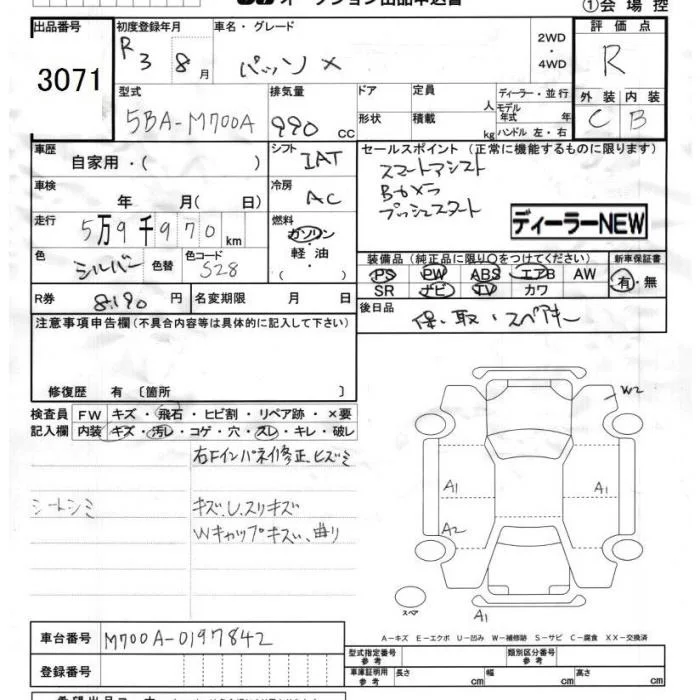 オークション出品申込書
①会場控
出品番号
3071
初度登録年月
R3 8月
車名・グレード
パッソ X
2WD
・
4WD
評価点
R
外装 内装
C B
型式
5BA-M700A
排気量
990 cc
ドア
形状
定員 人
積載 kg
ディーラー・並行
モデル年式 年
ハンドル 左・右
車歴
自家用・( )
シフト
IAT
セールスポイント (正常に機能するものに限ります)
スマートアシスト
Bカメラ
プッシュスタート
ディーラーNEW
車検
年 月( 日)
冷房
AC
走行
5万9千970km
燃料
ガソリン
・
軽油
( )
色
シルバー
色替
色コード
S28
装備品 (純正品に限り○をつけてください)
PS PW ABS エアB AW
SR ナビ TV カワ
新車保証書
有・無
R券
8190円
名変期限 月 日
後日品
保・取・スペアキー
注意事項申告欄(不具合内容等は具体的に記入して下さい)
修復歴 有〔箇所 〕
検査員
記入欄
FW キズ・飛石・ヒビ割・リペア跡・×要
内装 キズ・汚レ・コゲ・穴・スレ・キレ・破レ
右Fインパネ修正、ヒズミ
シートシミ
キズ、U、スリキズ
Wキャップキズ、曲リ
W2
A1
A1
A2
スペア
A1
A-キズ E-エクボ U-凹み W-補修跡 S-サビ C-腐食 XX-交換済
車台番号
M700A-0197842
登録番号
型式指定番号
参考
類別区分番号
参考
車庫証明用
参考
長さ cm
幅 cm
高さ cm